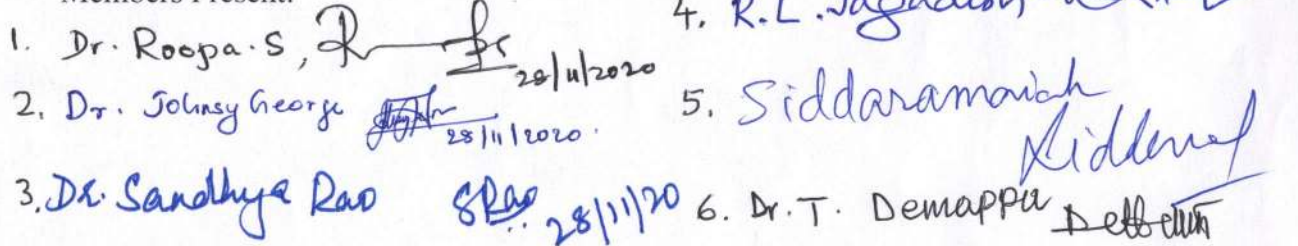 Members Present:
1. Dr. Roopa. S, 28/11/2020
2. Dr. Johnsy George 28/11/2020.
3. Dr. Sandhya Rao SRao 28/11/20
4. R.L. Jagadish
5. Siddaramaiah
6. Dr. T. Demappa